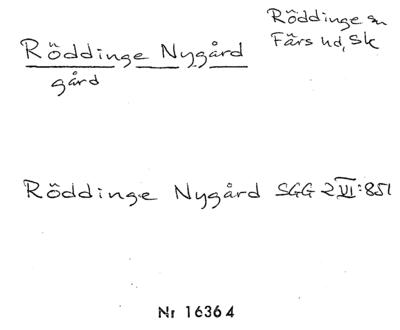 Röddinge sn
Färs hd, Sk
Röddinge Nygård
gård
Röddinge Nygård SGG 2 VI:851
Nr 16364